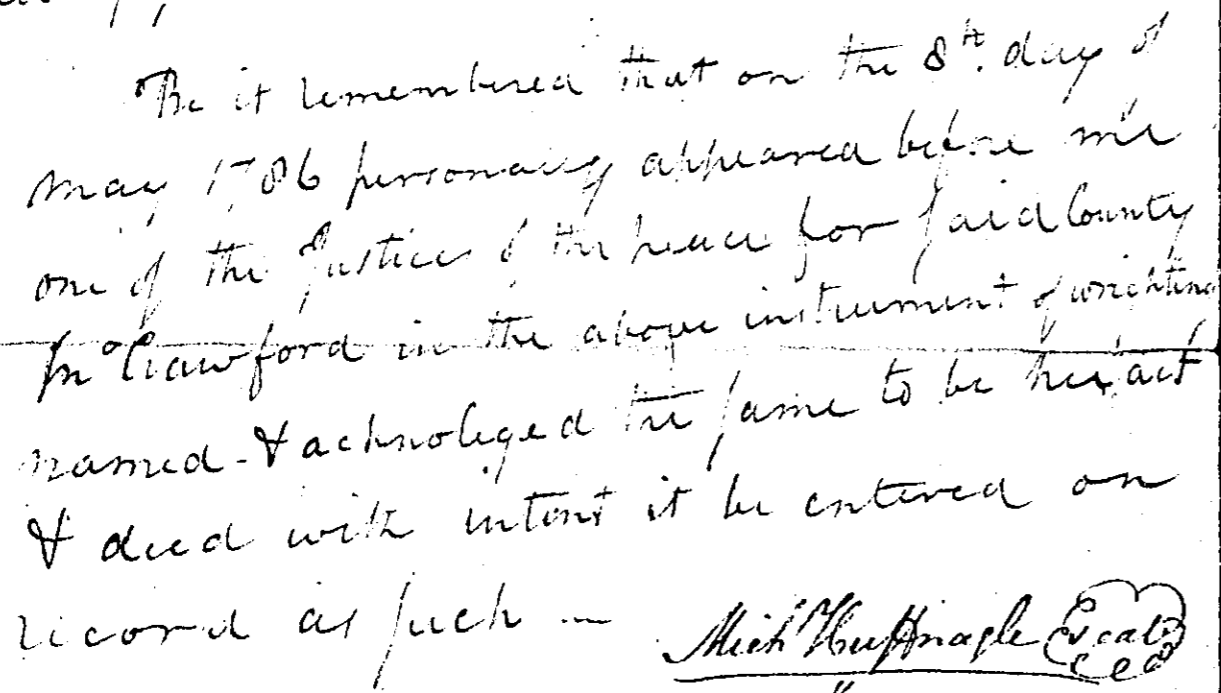 Be it remembered that on the 8th. day of
may 1786 personaly appeared before me
one of the Justices of the peace for said County
Jno Crawford in the above instrument of wrighting
named - & acknoleged the same to be his act
& deed with intent it be entered on
record as such —
Michl Huffnagle Seal